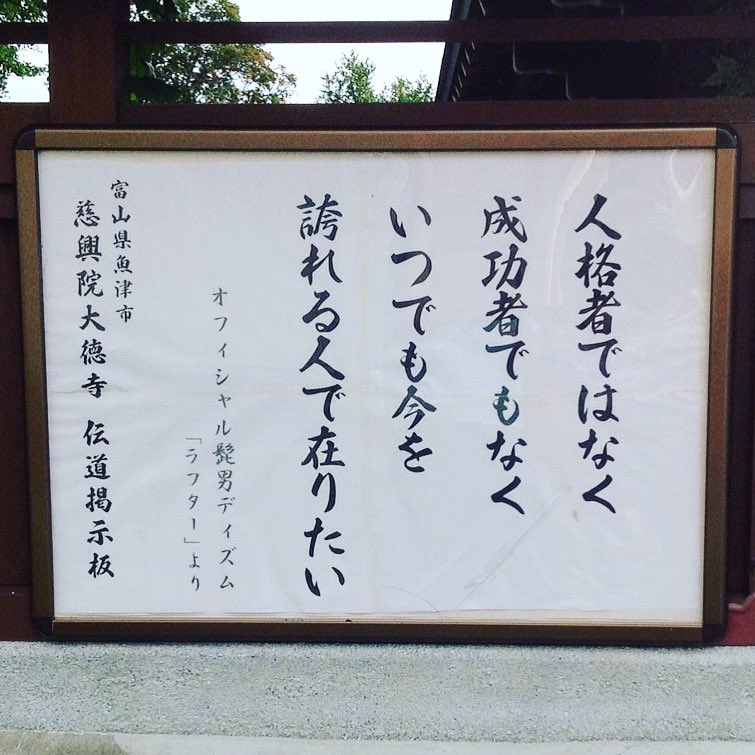 人格者ではなく
成功者でもなく
いつでも今を
誇れる人で在りたい
オフィシャル髭男ディズム
「ラフター」より
富山県魚津市
慈興院大徳寺 伝道掲示板